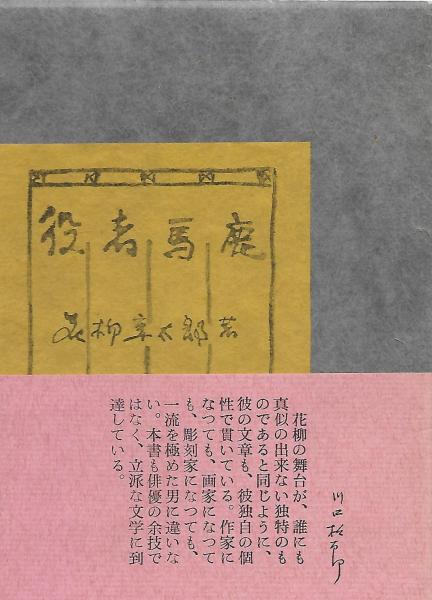 役者馬鹿
花柳章太郎著
花柳の舞台が、誰にも
真似の出来ない独特のも
のであると同じように、
彼の文章も、彼独自の個
性で貫いている。作家に
なっても、画家になって
も、彫刻家になっても、
一流を極めた男に違いな
い。本書も俳優の余技で
はなく、立派な文学に到
達している。
川口松太郎